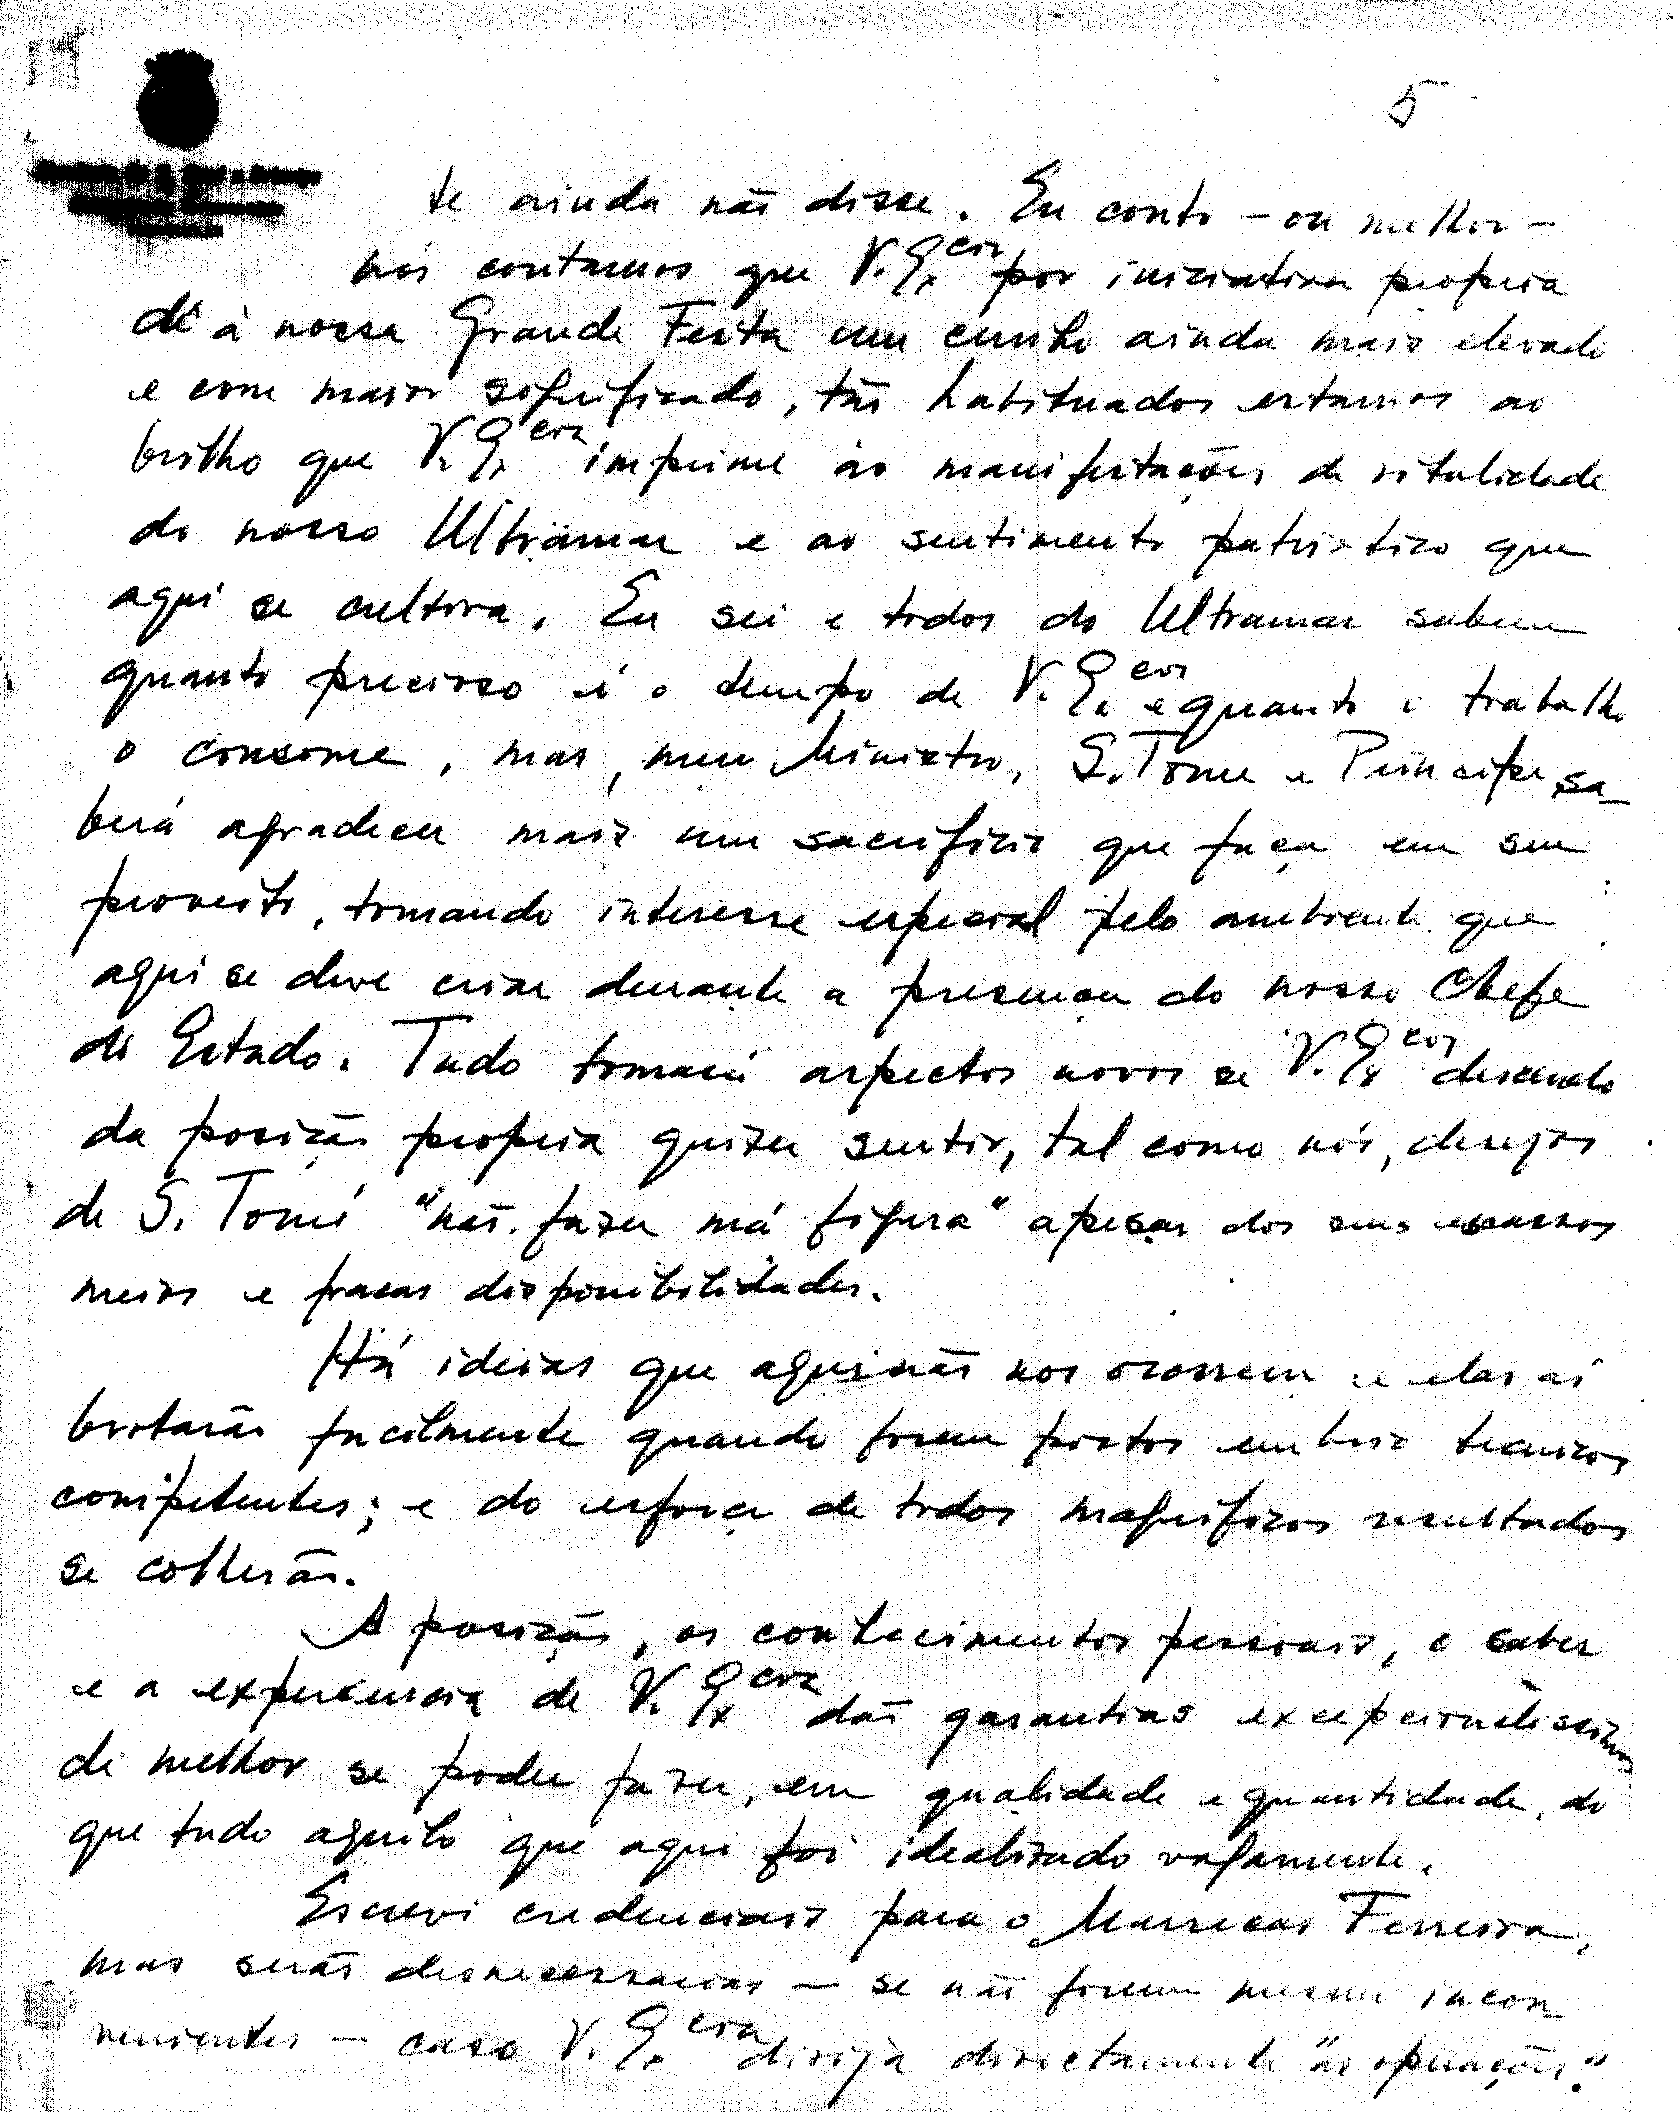 5
te ainda não disse. Eu conto – ou melhor –
nós contamos que V. Ex.cia por iniciativa propria
dê à nossa Grande Festa um cunho ainda mais elevado
e com maior significado, tão habituados estamos ao
brilho que V. Ex.cia imprime às manifestações de vitalidade
do nosso Ultramar e ao sentimento patriotico que
aqui se cultiva. Eu sei e todos do Ultramar sabem
quanto precioso é o tempo de V. Ex.cia e quanto o trabalho
o consome, mas, meu Ministro, S. Tomé e Principe sa-
berá agradecer mais um sacrificio que faça em seu
proveito, tomando interesse especial pelo ambiente que
aqui se deve criar durante a presença do nosso Chefe
de Estado. Tudo tomará aspectos novos se V. Ex.cia descendo
da posição propria quizer sentir, tal como nós, desejos
de S. Tomé "não fazer má figura" apesar dos seus escassos
meios e fracas disponibilidades.
Há ideias que aqui não nos ocorrem e elas aí
brotarão facilmente quando forem postos em brio tecnicos
competentes; e do esforço de todos magnificos resultados
se colherão.
A posição, os conhecimentos pessoais, o saber
e a experiencia de V. Ex.cia dão garantias excepcionalissimas
de melhor se poder fazer, em qualidade e quantidade, do
que tudo aquilo que aqui foi idealizado vagamente.
Escrevi credenciais para o Marrecas Ferreira,
mas serão desnecessarias – se não forem mesmo incon
venientes – caso V. Ex.cia dirija directamente "as operações."